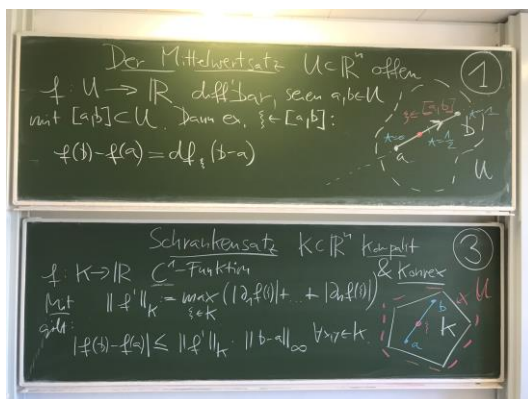 Der Mittelwertsatz U⊂ℝⁿ offen
①
f: U → ℝ diff'bar, seien a,b∈U
mit [a,b]⊂U. Dann ex. ξ∈[a,b]:
f(b)-f(a)=df_ξ(b-a)
ξ∈[a,b]
t=1
b
t=½
t=0
a
U
Schrankensatz K⊂ℝⁿ kompakt
③
f: K→ℝ C¹-Funktion & konvex
Mit ‖f'‖_K := max_{ξ∈K} (|∂₁f(ξ)|+...+|∂ₙf(ξ)|)
gilt:
|f(b)-f(a)| ≤ ‖f'‖_K · ‖b-a‖_∞
U
b
K
a